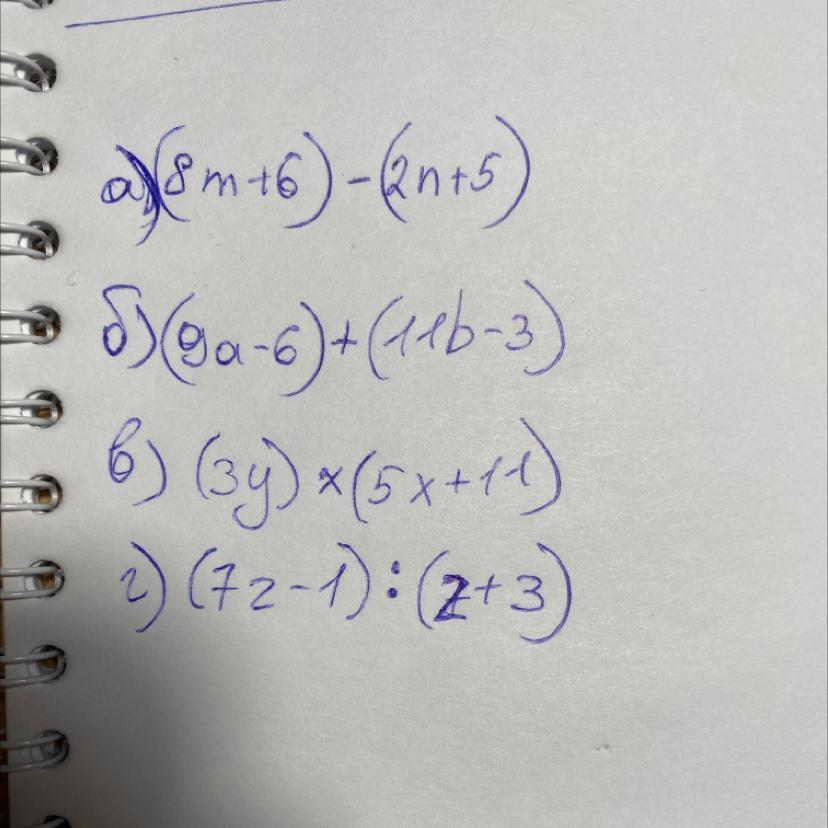 а) (8m+6)-(2n+5)
б) (9a-6)+(11b-3)
в) (3y)×(5x+11)
г) (7z-1):(z+3)